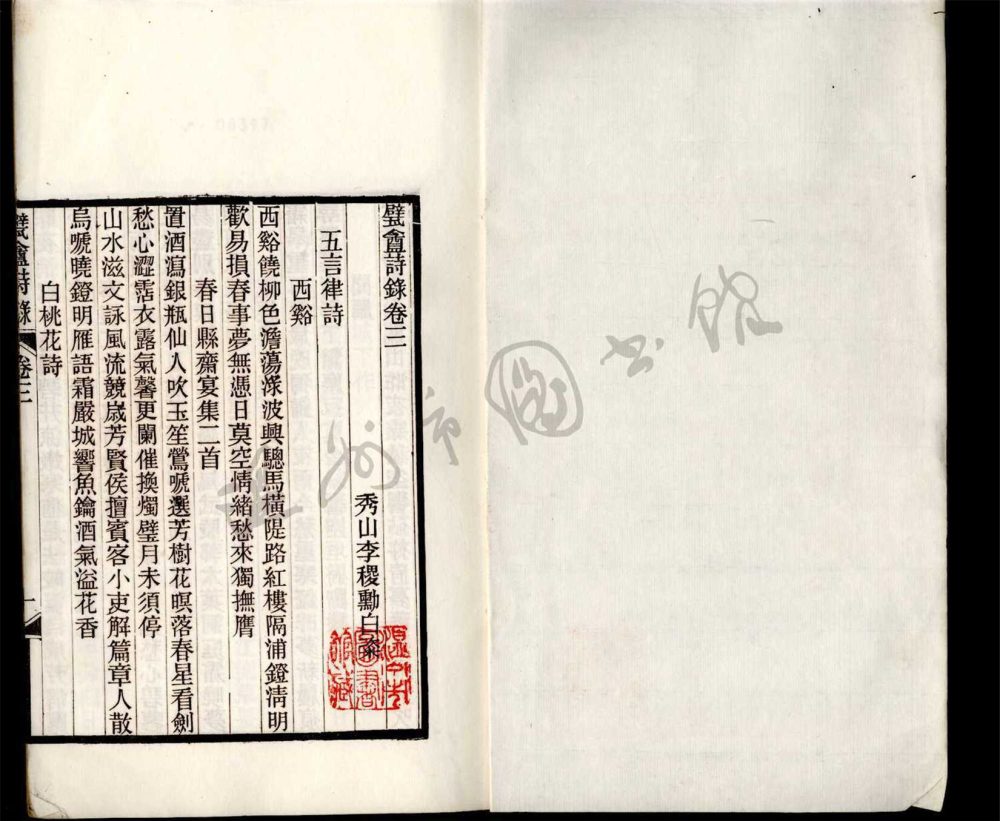 甓盦詩錄卷三
秀山李稷勳白
五言律詩
西谿
西谿饒柳色澹蕩淥波興驄馬橫隄路紅樓隔浦鐙淸明
歡易損春事夢無憑日莫空情緒愁來獨撫膺
春日縣齋宴集二首
置酒瀉銀瓶仙人吹玉笙鶯嗁選芳樹花暝落春星看劍
愁心澀霑衣露氣馨更闌催換燭璧月未須停
山水滋文詠風流競歲芳賢侯擅賓客小吏解篇章人散
烏嗁曉鐙明雁語霜嚴城響魚鑰酒氣溢花香
白桃花詩
甓盦詩錄
卷三
一
圖書
館藏
溫州市圖書館